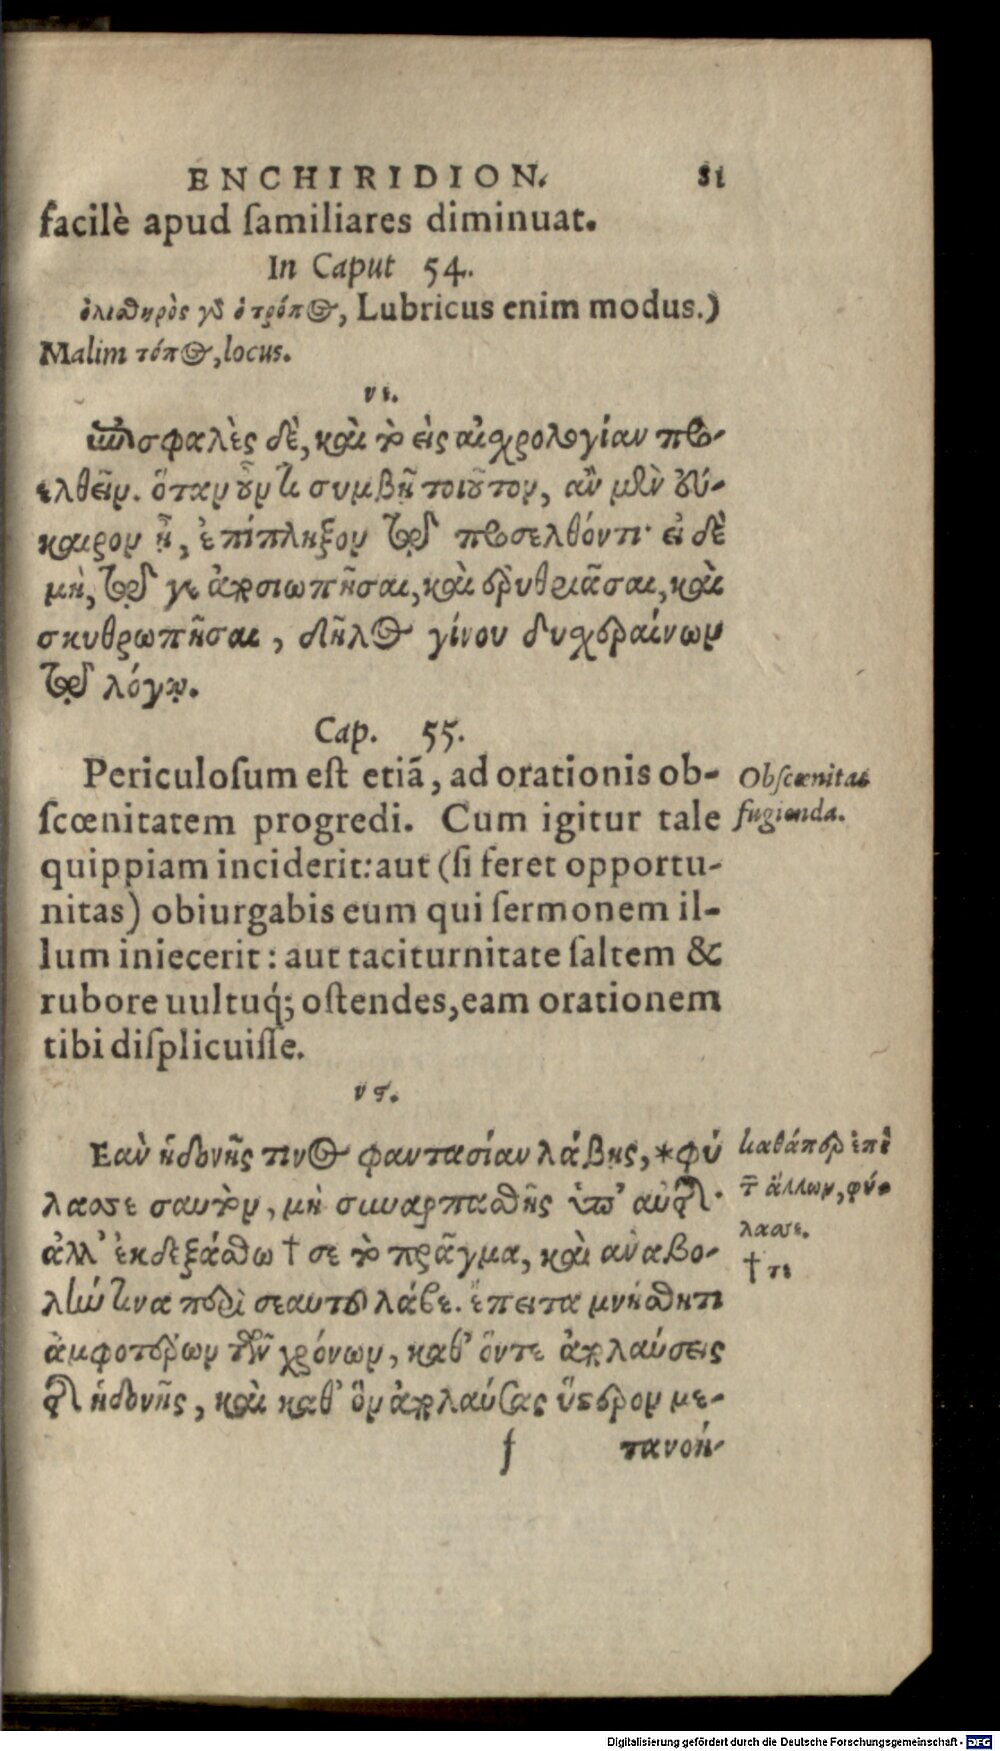 ENCHIRIDION. 81
facilè apud familiares diminuat.
In Caput 54.
ὀλισθηρὸς γὰρ ὁ τρόπος, Lubricus enim modus.)
Malim τόπος, locus.
νε.
Ἐπισφαλὲς δὲ, καὶ τὸ εἰς αἰσχρολογίαν προ-
ελθεῖν. ὅταν οὖν τι συμβῇ τοιοῦτον, ἂν μὲν εὔ-
καιρον ᾖ, ἐπίπληξον τῷ προσελθόντι· εἰ δὲ
μὴ, τῷ γε ἀποσιωπῆσαι, καὶ ἐρυθριᾶσαι, καὶ
σκυθρωπῆσαι, δῆλος γίνου δυσχεραίνων
τῷ λόγῳ.
Cap. 55.
Periculosum est etiã, ad orationis ob-
scœnitatem progredi. Cum igitur tale
quippiam inciderit: aut (si feret opportu-
nitas) obiurgabis eum qui sermonem il-
lum iniecerit: aut taciturnitate saltem &
rubore uultuq́; ostendes, eam orationem
tibi displicuisse.
Obscœnitas
fugienda.
νϛ.
Ἐὰν ἡδονῆς τινος φαντασίαν λάβῃς, *φύ
λασσε σαυτὸν, μὴ συναρπασθῇς ὑπ' αὐτῆς·
ἀλλ' ἐκδεξάσθω † σε τὸ πρᾶγμα, καὶ ἀναβο-
λὴν τινα παρὰ σεαυτοῦ λάβε. ἔπειτα μνήσθητι
ἀμφοτέρων τῶν χρόνων, καθ' ὅν τε ἀπολαύσεις
τῆς ἡδονῆς, καὶ καθ' ὃν ἀπολαύσας ὕστερον με-
καθάπερ ἐπὶ
τῶν ἄλλων, φύ-
λασσε.
† τι
f τανοή-
Digitalisierung gefördert durch die Deutsche Forschungsgemeinschaft - DFG